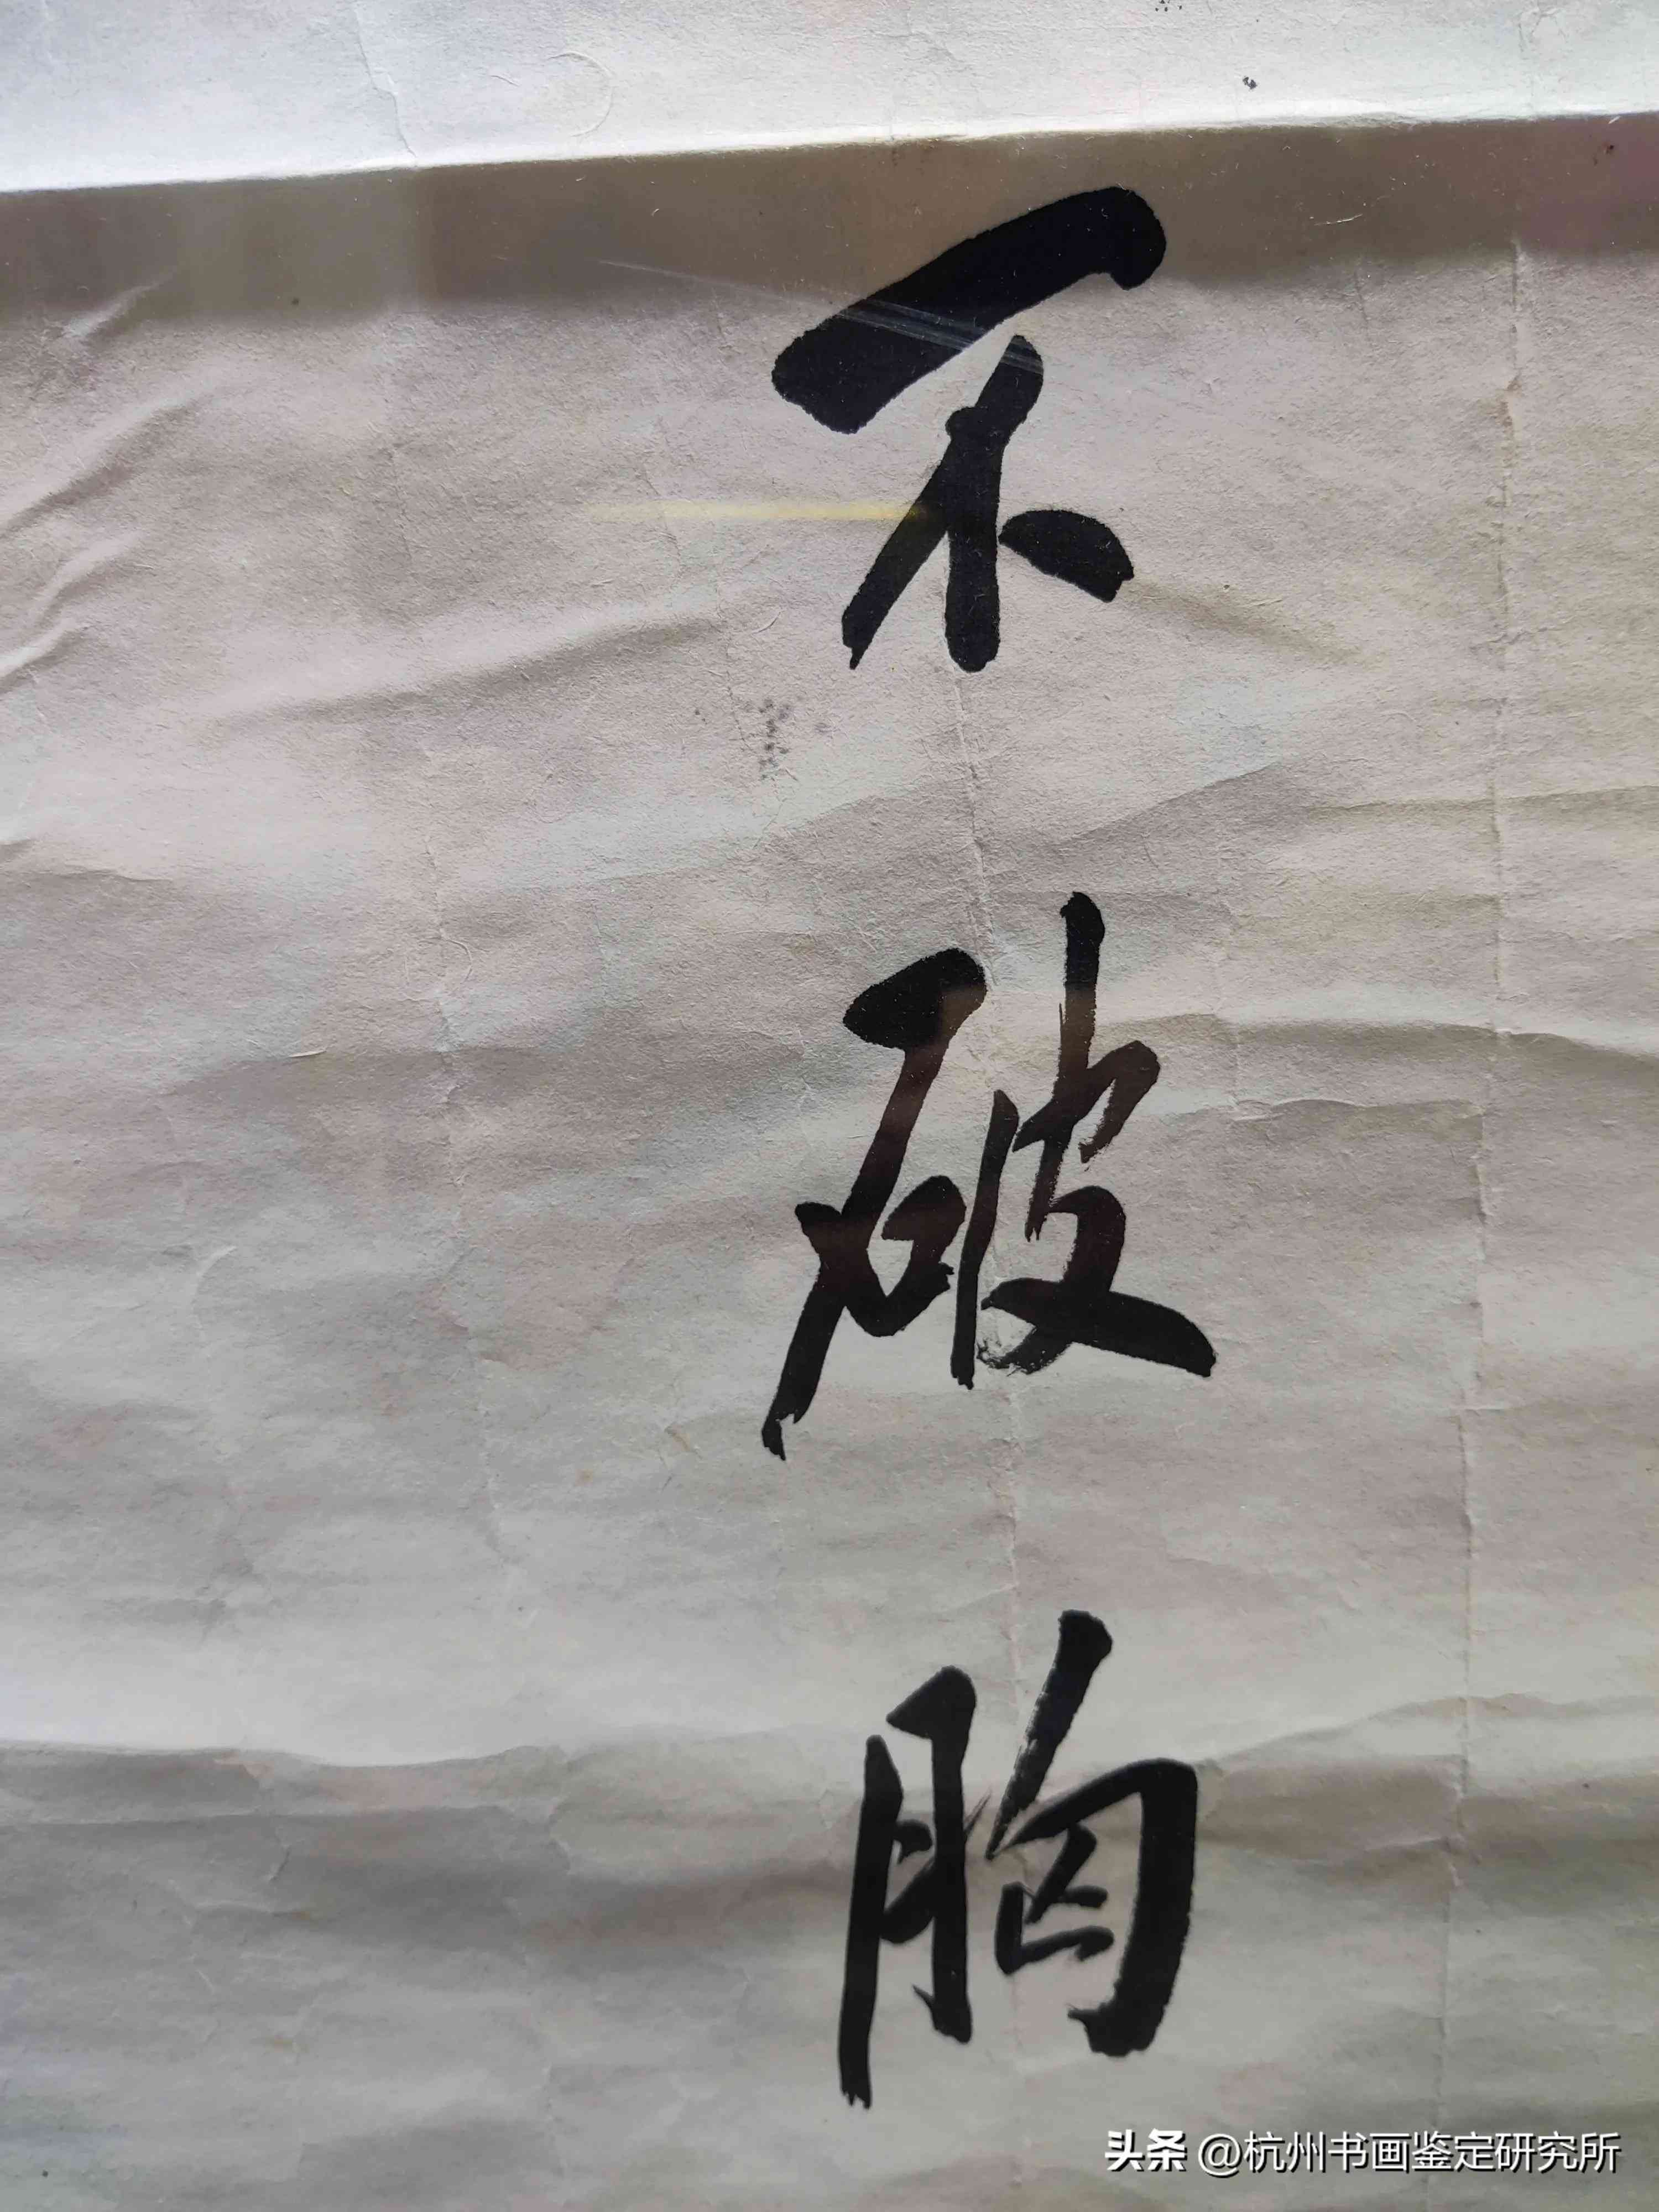 不破胸
头条 @杭州书画鉴定研究所